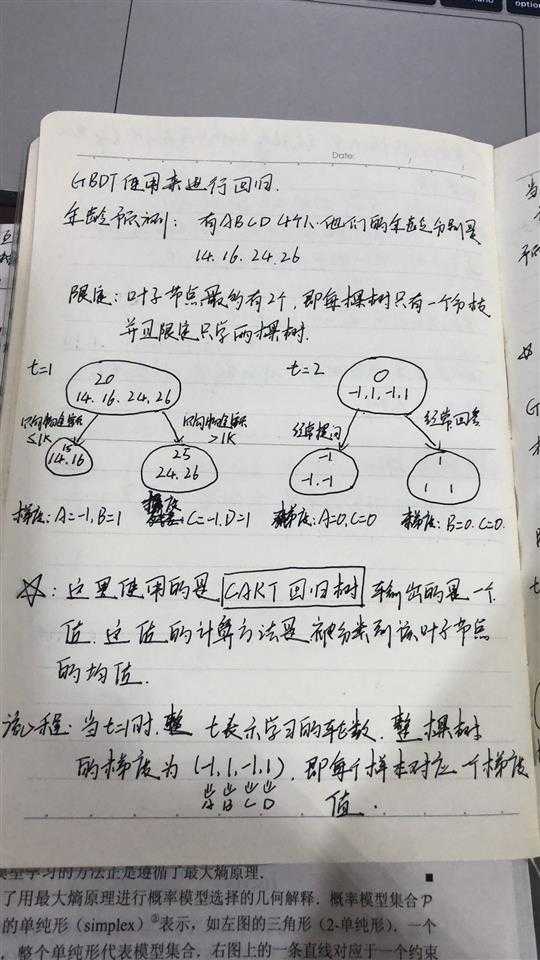 option
Date:
GBDT使用来进行回归.
年龄预测: 有ABCD 4个人.他们的年龄分别是
14. 16. 24. 26
限定: 叶子节点最多有2个, 即每棵树只有一个分枝
并且限定只学两棵树.
t=1
20
14. 16. 24. 26
t=2
0
-1, 1, -1, 1
≤1K
>1K
经常提问
经常回答
15
14. 16
25
24. 26
-1
-1, -1
1
1 1
梯度: A=-1, B=1
C=-1, D=1
梯度: A=0, C=0
梯度: B=0. C=0.
☆: 这里使用的是 CART回归树 输出的是一个
值. 这值的计算方法是被分类到该叶子节点
的均值.
流程: 当t=1时. t表示学习的轮数. 整棵树
的梯度为 (-1, 1, -1, 1), 即每个样本对应一个梯度
A B C D 值.
模型学习的方法正是遵循了最大熵原理.
了用最大熵原理进行概率模型选择的几何解释. 概率模型集合 P
的单纯形 (simplex) ② 表示, 如左图的三角形 (2-单纯形). 一个
, 整个单纯形代表模型集合. 右图上的一条直线对应于一个约束